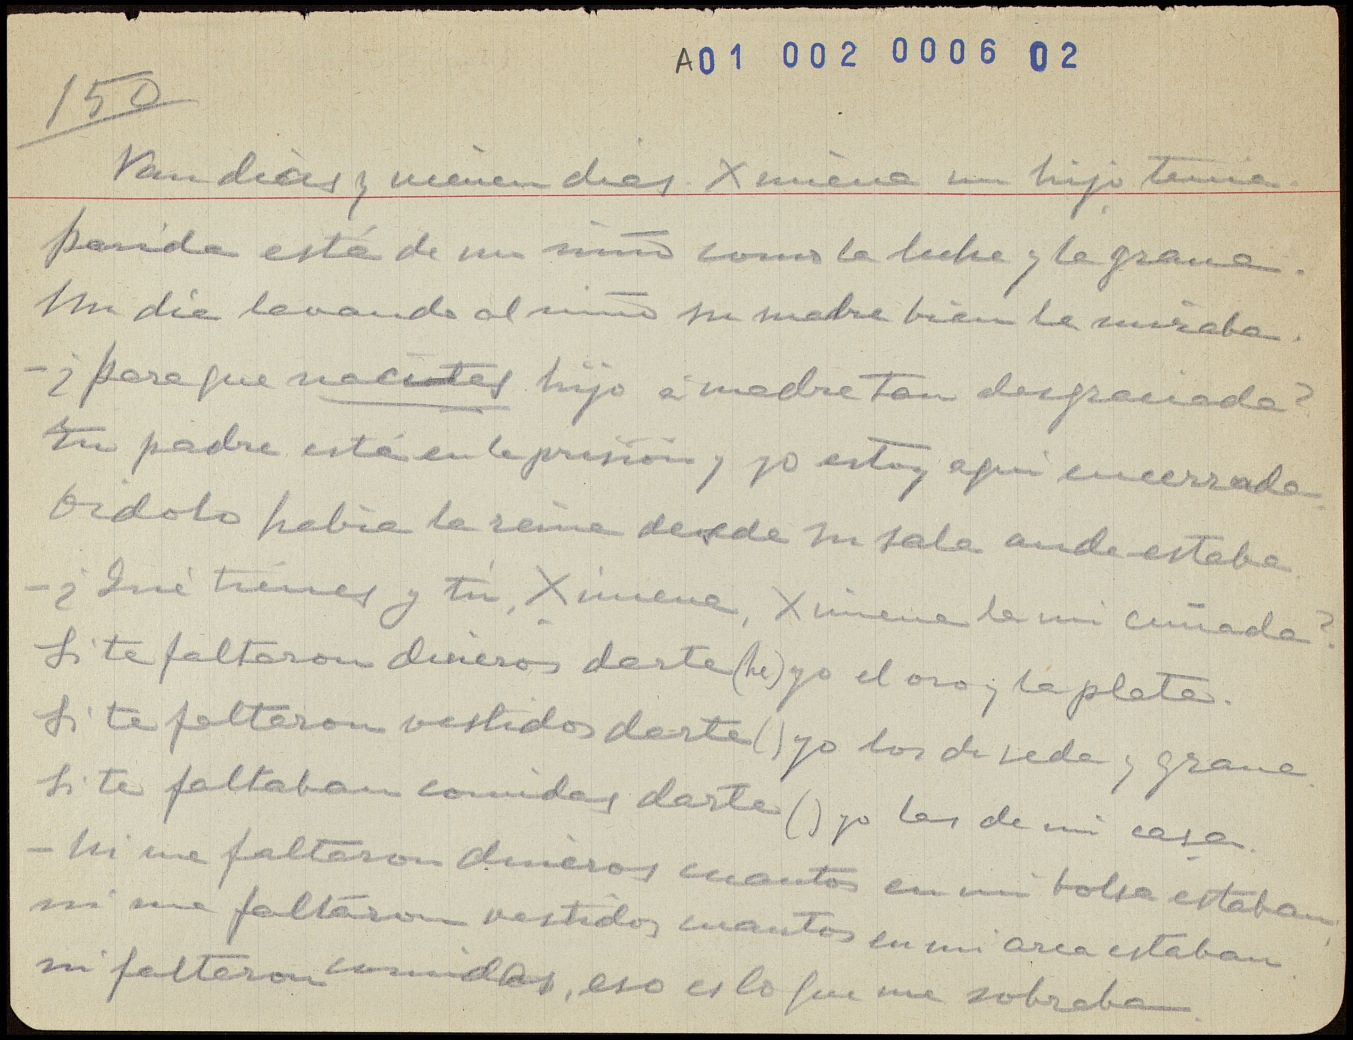 A01 002 0006 02
150
Van dias y vienen dias. Ximena un hijo tenia.
parida está de un niño como la leche y la grana.
Un dia lavando al niño su madre bien le miraba.
- ¿para que nacistes hijo á madre tan desgraciada?
Tu padre está en la prisión y yo estoy aqui encerrada.
Oidolo habia la reina desde su sala ande estaba.
- ¿Qué tienes y tú, Ximena, Ximena la mi cuñada?
Si te faltaron dineros darte (he) yo el oro y la plata.
Si te faltaron vestidos darte ( ) yo los de seda y grana.
Si te faltaban comidas darte ( ) yo las de mi casa.
- Ni me faltaron dineros cuantos en mi bolsa estaban,
ni me faltaron vestidos cuantos en mi arca estaban.
ni faltaron comidas, eso es lo que me sobraba.